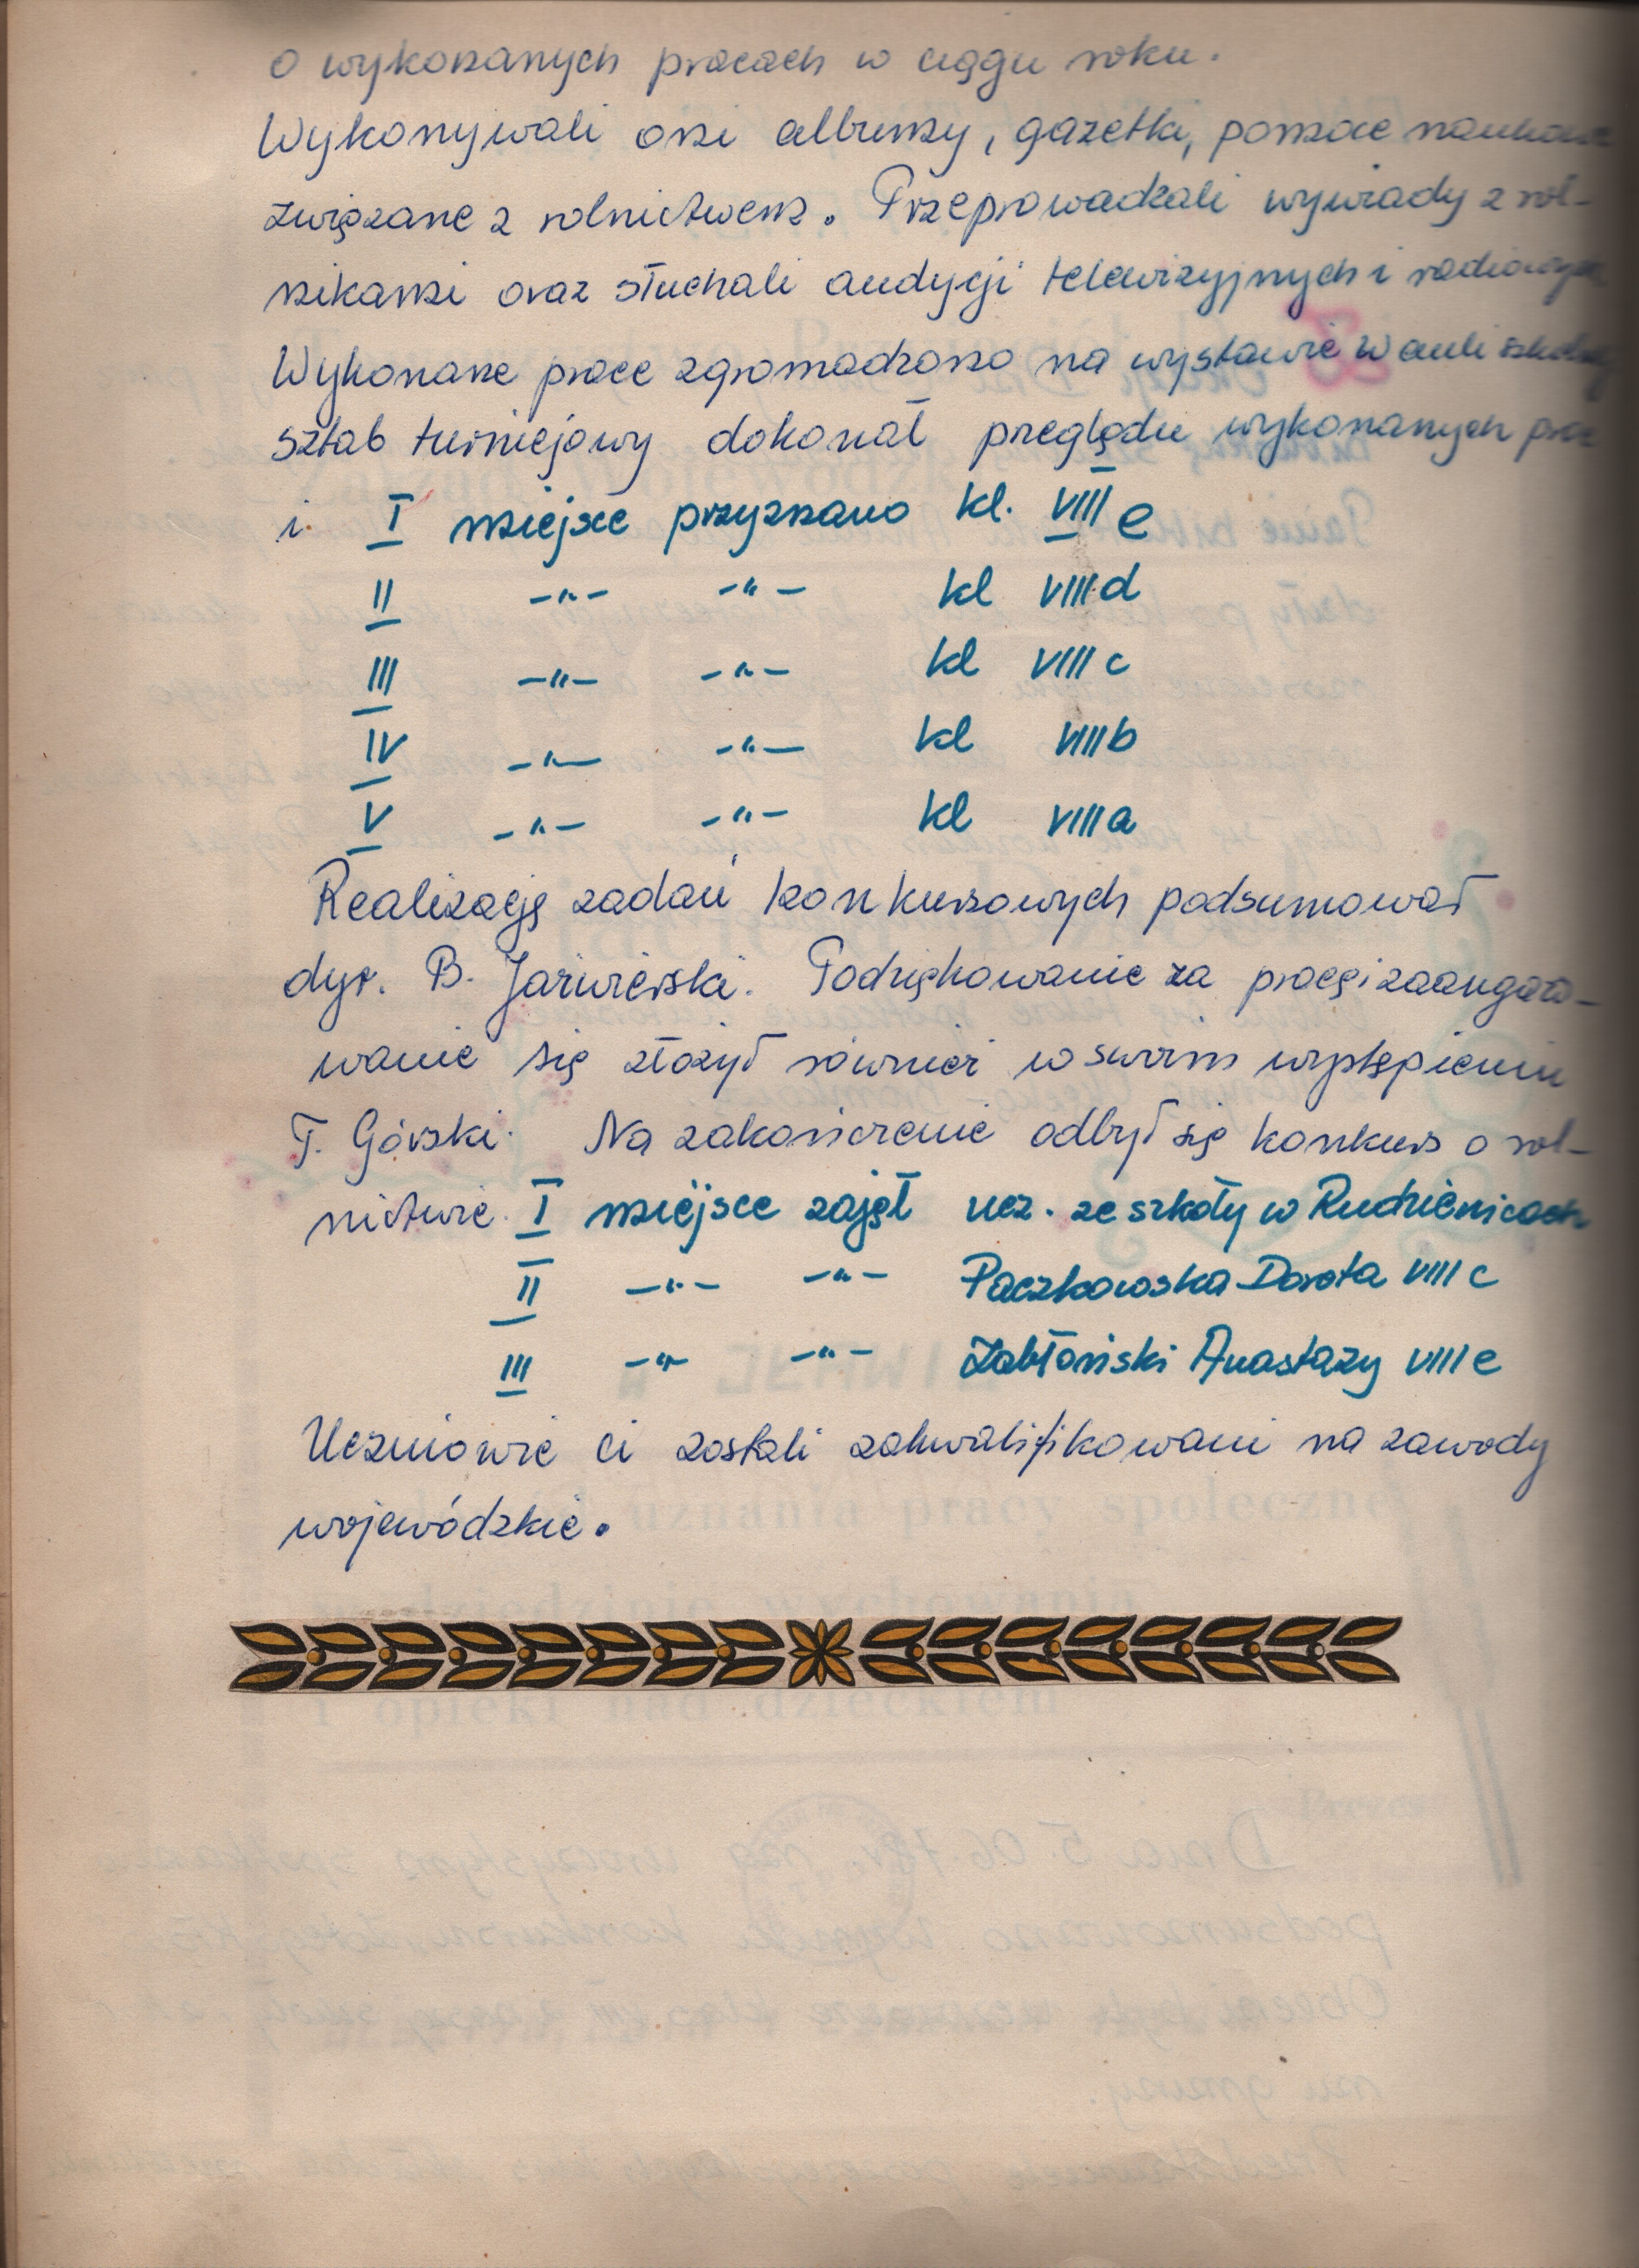 o wykonanych pracach w ciągu roku.
Wykonywali oni albumy, gazetki, pomoce naukowe
związane z rolnictwem. Przeprowadzali wywiady z rol-
nikami oraz słuchali audycji telewizyjnych i radiowych
Wykonane prace zgromadzono na wystawie w auli szkolnej
sztab turniejowy dokonał preglądu wykonanych prac
i I miejsce przyznano kl. VIII e
II -"- -"- kl VIII d
III -"- -"- kl VIII c
IV -"- -"- kl VIII b
V -"- -"- kl VIII a
Realizację zadań konkursowych podsumował
dyr. B. Podziękowanie za pracę i zaangażo-
wanie się złożył również w swoim wystąpieniu
T. Górski. Na zakończenie odbył się konkurs o rol-
nictwie. I miejsce zajął ucz. ze szkoły w Rudzienicach
II -"- -"- Paczkowska Dorota VIII c
III -"- -"- Zabłoński Anastazy VIII e
Uczniowie ci zostali zakwalifikowani na zawody
wojewódzkie.